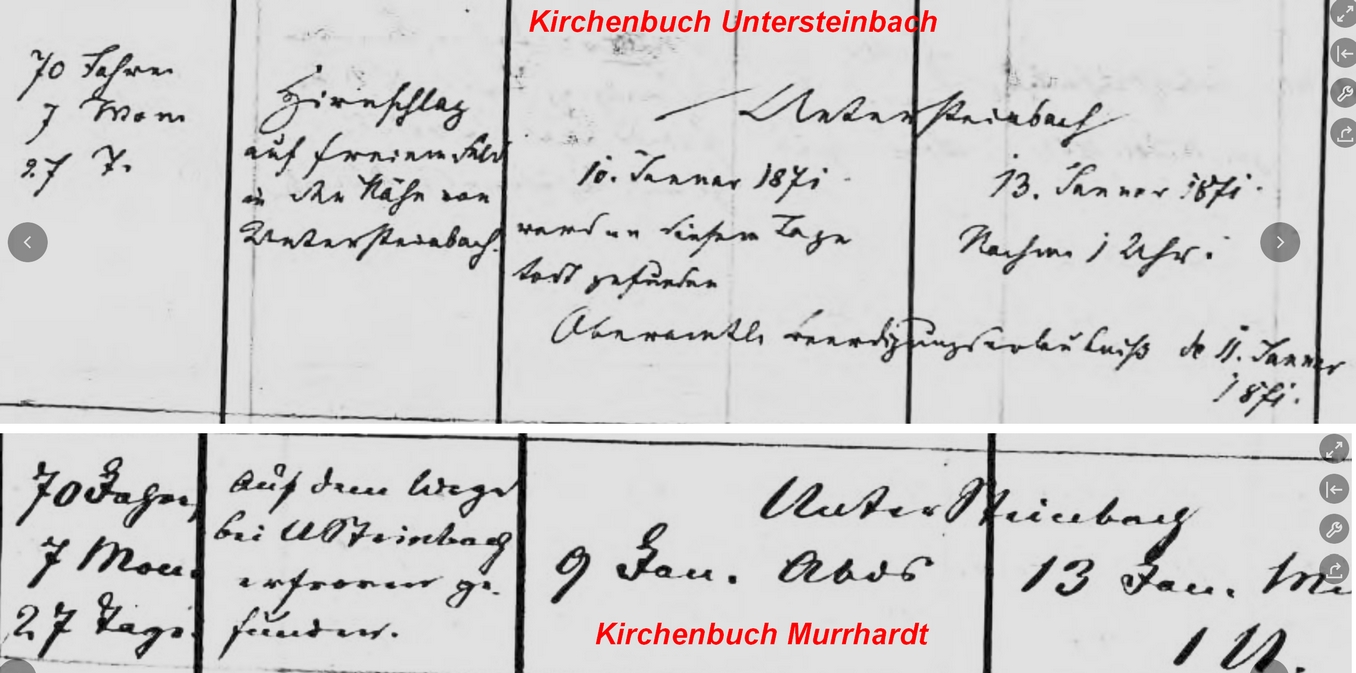 Kirchenbuch Untersteinbach
70 Jahre
7 Mon
27 T.
Hirnschlag
auf freiem Feld
in der Nähe von
Untersteinbach.
Untersteinbach
10. Januar 1871
an diesem Tage
todt gefunden
13. Januar 1871.
Nachm 1 Uhr.
Oberamtl. Beerdigungserlaubniß de 11. Januar
1871.
70 Jahre,
7 Mon.
27 Tage.
Auf dem Wege
bei USteinbach
erfroren ge-
funden.
Untersteinbach
9 Jan. Abds
13 Jan.
1 U.
Kirchenbuch Murrhardt